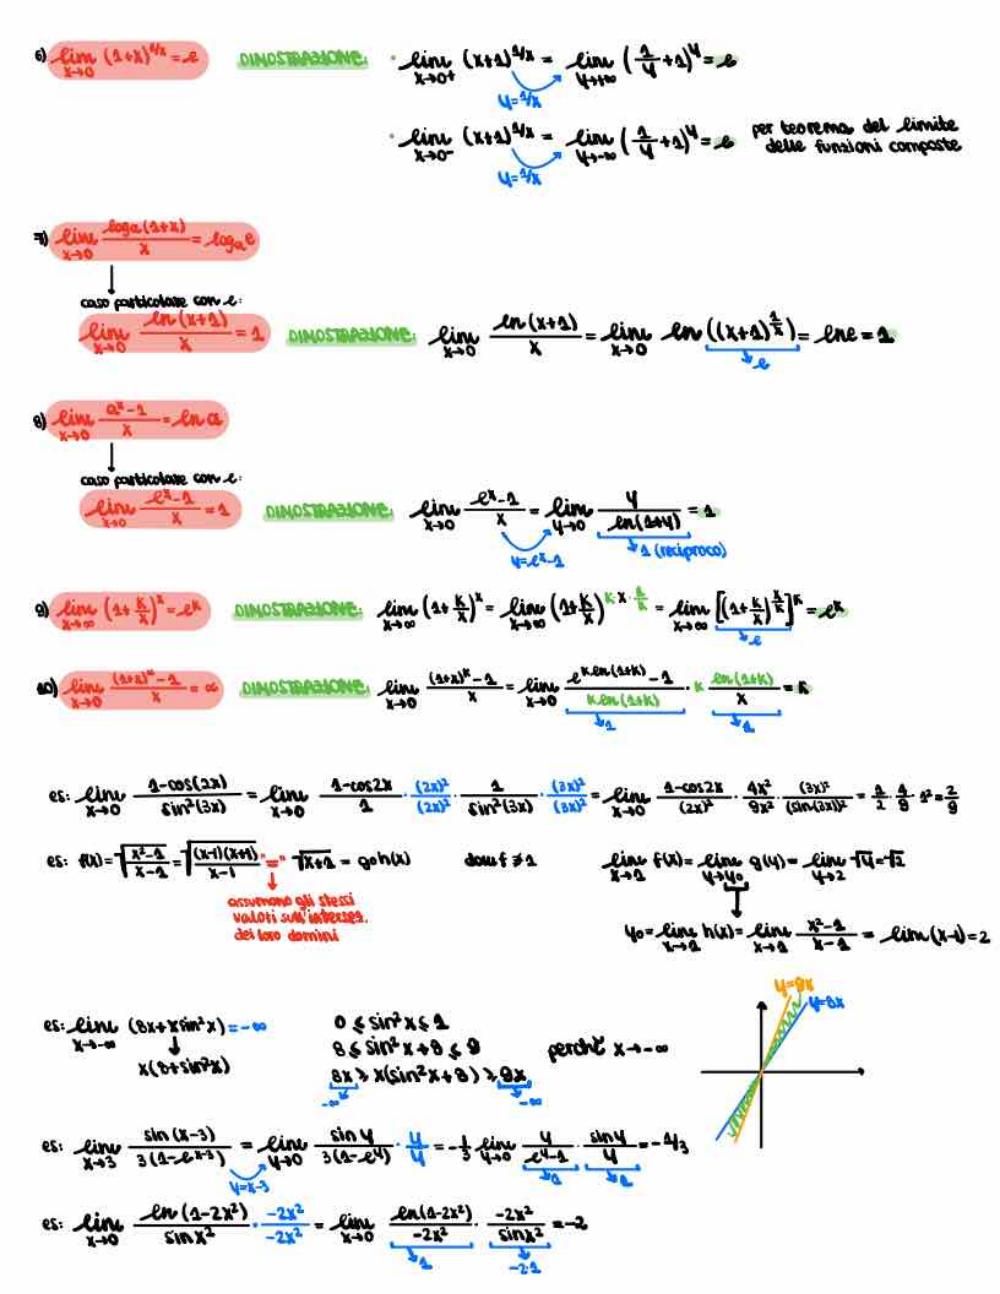 6) lim x→0 (1+x)^1/x = e DIMOSTRAZIONE: • lim x→0⁺ (x+1)^1/x = lim y→+∞ (1/y +1)^y = e
y=1/x
• lim x→0⁻ (x+1)^1/x = lim y→-∞ (1/y +1)^y = e per teorema del limite
delle funzioni composte
y=1/x
7) lim x→0 loga(1+x)/x = loga e
caso particolare con e:
lim x→0 ln(x+1)/x = 1 DIMOSTRAZIONE: lim x→0 ln(x+1)/x = lim x→0 ln((x+1)^1/x) = lne = 1
e
8) lim x→0 (a^x-1)/x = ln a
caso particolare con e:
lim x→0 (e^x-1)/x = 1 DIMOSTRAZIONE: lim x→0 (e^x-1)/x = lim y→0 y/ln(1+y) = 1
y=e^x-1 1 (reciproco)
9) lim x→∞ (1+k/x)^x = e^k DIMOSTRAZIONE: lim x→∞ (1+k/x)^x = lim x→∞ (1+k/x)^k·x·1/k = lim x→∞ [(1+k/x)^x/k]^k = e^k
e
10) lim x→0 ((1+x)^∝-1)/x = ∝ DIMOSTRAZIONE: lim x→0 ((1+x)^k-1)/x = lim x→0 (e^k ln(1+k) -1)/(k ln(1+k)) · k ln(1+k)/x = k
1 1
es: lim x→0 1-cos(2x)/sin²(3x) = lim x→0 1-cos2x/1 · (2x)²/(2x)² · 1/sin²(3x) · (3x)²/(3x)² = lim x→0 1-cos2x/(2x)² · 4x²/9x² · (3x)²/(sin(3x))² = 1/2 · 4/9 · 1² = 2/9
es: f(x)=√(x²-1/x-1) = √((x-1)(x+1)/x-1) "=" √x+1 = g∘h(x) dom f ≠1 lim x→1 f(x) = lim y→y0 g(y) = lim y→2 √y = √2
assumono gli stessi
valori sull'interses.
dei loro domini
y0 = lim x→1 h(x) = lim x→1 x²-1/x-1 = lim (x-1) = 2
y=9x
y=8x
es: lim x→-∞ (8x+xsin²x) = -∞ 0 ≤ sin²x ≤ 1
x(8+sin²x) 8 ≤ sin²x+8 ≤ 9 perché x→-∞
8x ≥ x(sin²x+8) ≥ 9x
-∞ -∞
es: lim x→3 sin(x-3)/3(1-e^x-3) = lim y→0 sin y/3(1-e^y) · y/y = -1/3 lim y→0 y/e^y-1 · sin y/y = -1/3
y=x-3 1 1
es: lim x→0 ln(1-2x²)/sin x² · -2x²/-2x² = lim x→0 ln(1-2x²)/-2x² · -2x²/sin x² = -2
1 -2·1